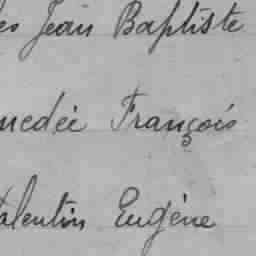 es Jean Baptiste
medée François
alentin Eugène